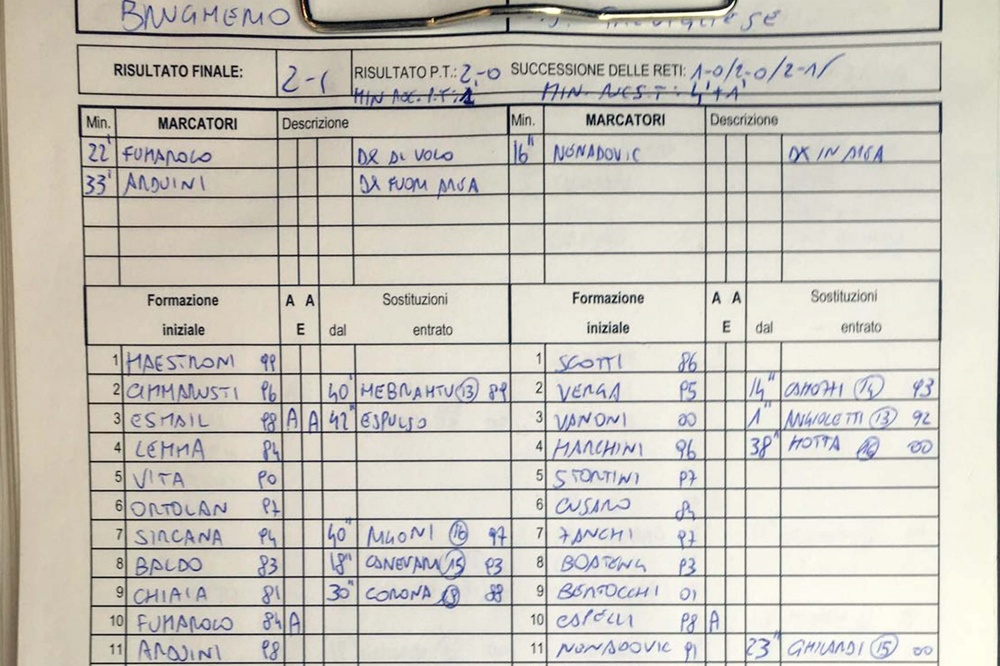 BANGHEMO
RISULTATO FINALE: 2-1 RISULTATO P.T.: 2-0 SUCCESSIONE DELLE RETI: 1-0/2-0/2-1/
MIN REC. P.T: 1' MIN. REC S.T: 4'+1'
Min. MARCATORI Descrizione Min. MARCATORI Descrizione
22' FUMAROLO DX DI VOLO 16" NENADOVIC DX IN AREA
33' ARDUINI DX FUORI AREA
Formazione A A Sostituzioni Formazione A A Sostituzioni
iniziale E dal entrato iniziale E dal entrato
1 MAESTRONI 99 1 SCOTTI 86
2 CAMMARUSTI 96 40" MEBRAHTU 13 89 2 VERGA 95 14" CAMOZZI 14 93
3 ESMAIL 98 A A 42" ESPULSO 3 VANONI 00 1" ANGIOLETTI 13 92
4 LEMMA 84 4 MARCHINI 96 38" MOTTA 00
5 VITA 90 5 STORTINI 97
6 ORTOLAN 97 6 CUSARO 84
7 SIRCANA 94 40" MUONI 16 97 7 ZANCHI 97
8 BALDO 83 18" CANEVARI 15 93 8 BOATENG 93
9 CHIAIA 81 30" CORONA 88 9 BERTOCCHI 01
10 FUMAROLO 84 A 10 CAPELLI 98 A
11 ARDUINI 98 11 NENADOVIC 91 23" GHILARDI 15 00